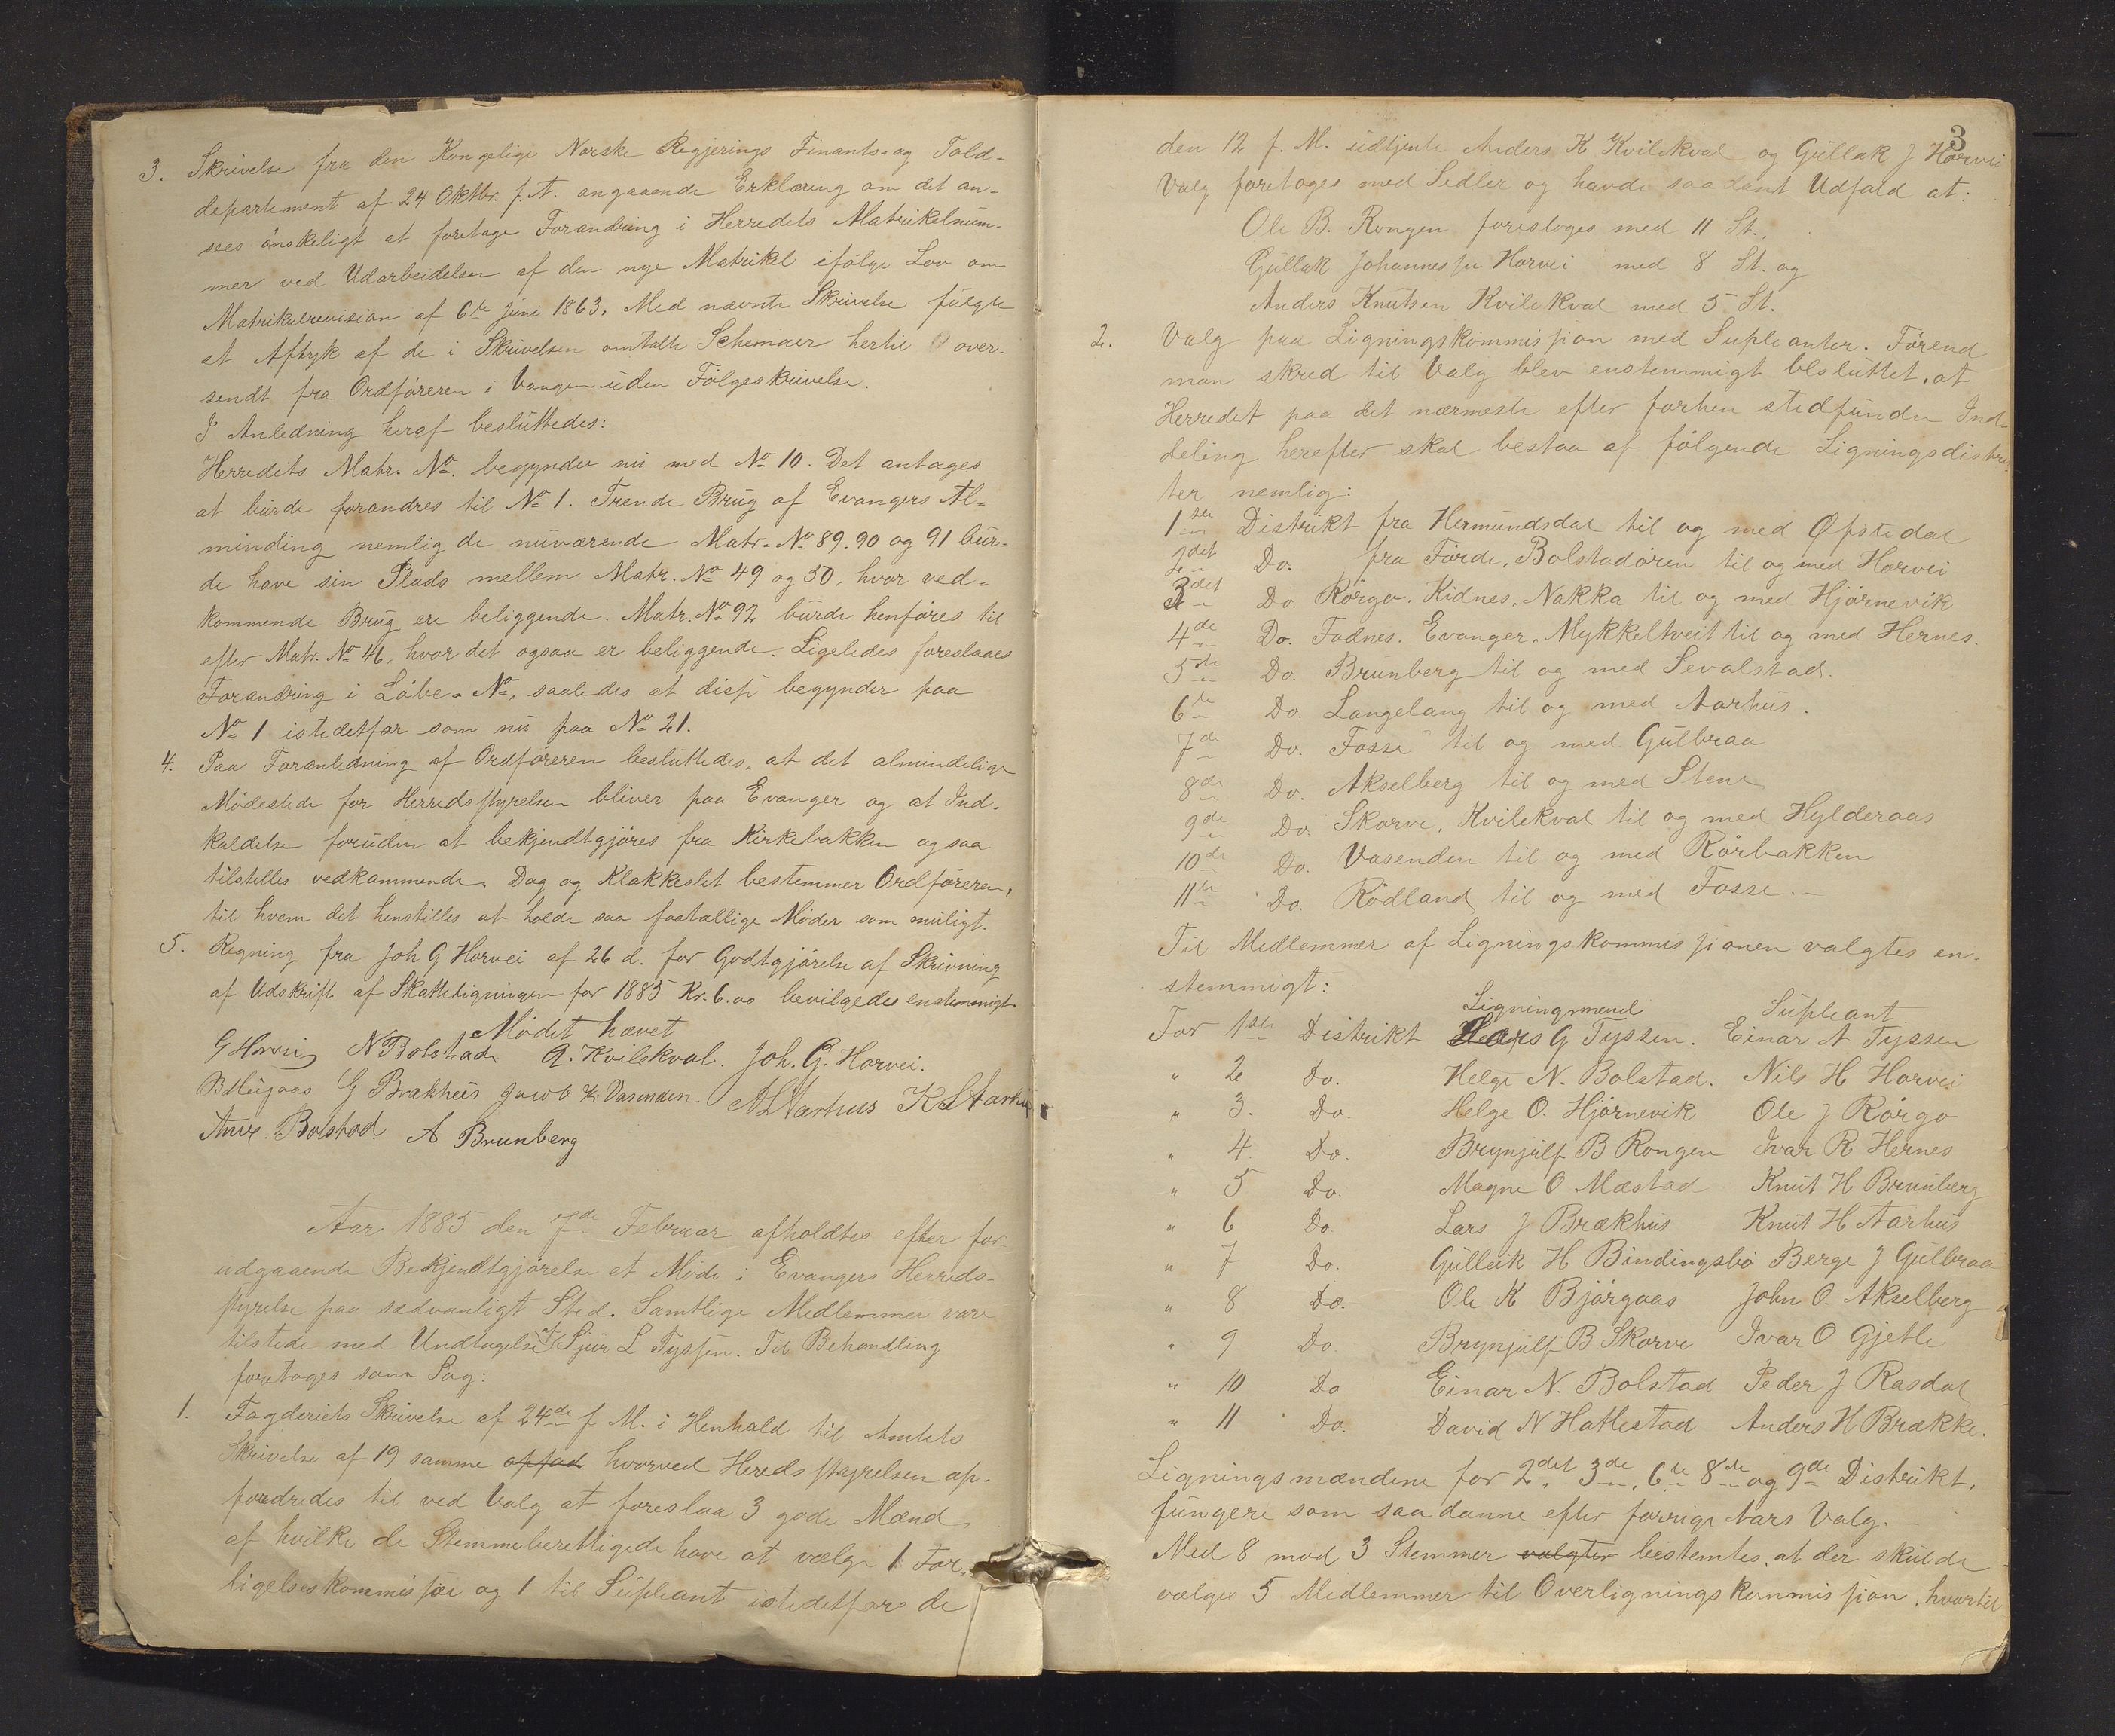 3. Skrivelse fra den Kongelige Norske Regjerings Finants- og Told-
departement af 24 Oktbr. f. A. angaaende Erklæring om det an-
sees önskeligt at foretage Forandring i Herredets Matrikelnum-
mer ved Udarbeidelsen af den nye Matrikel ifölge Lov om
Matrikulrevision af 6te Juni 1863. Med nævnte Skrivelse fulgte
et Aftryk af de i Skrivelsen omtalte Schemaer hertil over-
sendt fra Ordföreren i Vangen uden Fölgeskrivelse.
I Anledning heraf besluttedes:
Herredets Matr. No. begynder nu med No 10. Det antages
at burde forandres til No 1. Trende Brug af Evangers Al-
minding nemlig de nuværende Matr. No 89. 90 og 91 bur-
de have sin Plads mellem Matr. No 49 og 50, hvor ved-
kommende Brug ere beliggende. Matr. No 92 burde henföres til
efter Matr. No 46, hvor det ogsaa er beliggende. Ligeledes foreslaaes
Forandring i Löbe-No, saaledes at disse begynder paa
No 1 istedetfor som nu paa No 21.
4. Paa Foranledning af Ordföreren besluttedes, at det almindelige
Mödested for Herredsstyrelsen bliver paa Evanger og at Ind-
kaldelse foruden at bekjendtgjöres fra Kirkebakken ogsaa
tilstilles vedkommende. Dag og Klokkeslet bestemmer Ordföreren,
til hvem det henstilles at holde saa faatallige Möder som muligt.
5. Regning fra Joh G Horvei af 26 d. for Godtgjörelse af Skrivning
af Udskrift af Skatteligningen for 1885 Kr. 6.00 bevilgedes enstemmigt.
Mödet hævet
G Horvei N Bolstad A. Kvilekval. Joh. G. Horvei.
G Brækhus Jacob K. Vasenden A L Aarhus K L Aarhus
Anve. Bolstad. A Brunberg
Aar 1885 den 7de Februar afholdtes efter for-
udgaaende Bekjendtgjörelse et Möde i Evangers Herreds-
styrelse paa sædvanligt Sted. Samtlige Medlemmer vare
tilstede med Undtagelse af Sjur L Tyssen. Til Behandling
foretoges som Sag:
1. Fogderiets Skrivelse af 24de f. M. i Henhold til Amtets
Skrivelse af 19 samme hvorved Heredsstyrelsen op-
fordredes til ved Valg at foreslaa 3 gode Mænd
af hvilke de Stemmeberettigede have at vælge 1 For-
ligelseskommissær og 1 til Supleant istedetfor de
3
den 12 f. M. udtjente Anders K Kvilekval og Gullak J Horvei
Valg foretoges med Sedler og havde saadant Udfald at:
Ole B. Rongen foresloges med 11 St.,
Gullak Johannessen Horvei med 8 St. og
Anders Knutsen Kvilekval med 5 St.
2. Valg paa Ligningskommission med Supleanter. Förend
man skred til Valg blev enstemmigt besluttet, at
Herredet paa det nærmeste efter forhen stedfunden Ind-
deling herefter skal bestaa af fölgende Ligningsdistrik-
ter nemlig:
1ste Distrikt fra Hermundsdal til og med Öfstedal
2det Do. fra Förde, Bolstadören til og med Horvei
3det Do. Rörgo. Kidnes, Nakka til og med Hjörnevik
4de Do. Fadnes. Evanger. Mykkeltveit til og med Hernes.
5te Do. Brunberg til og med Sevalstad.
6te Do. Langeland til og med Aarhus.
7de Do. Fosse til og med Gulbraa
8de Do. Akselberg til og med Stene
9de Do. Skorve, Kvilekval til og med Hylderaas
10de Do. Vasenden til og med Rörbakken
11te Do. Rödland til og med Fosse.
Til Medlemmer af Ligningskommissionen valgtes en-
stemmigt:
Ligningsmænd Supleant
For 1ste Distrikt Lars G Tyssen. Einar A Tyssen
" 2 Do. Helge N. Bolstad. Nils H Horvei
" 3. Do. Helge O. Hjörnevik Ole J Rörgo
" 4. Do. Brynjulf B Rongen Ivar R Hernes
" 5 Do. Magne O Mæstad Knut H Brunberg
" 6 Do. Lars J Brækhus Knut H Aarhus
" 7 Do. Gulleik H Bindingsbö Berge J Gulbraa
" 8 Do. Ole K Björgaas John O. Akselberg
" 9 Do. Brynjulf B Skorve Ivar O Gjetle
" 10 Do Einar N. Bolstad Peder J Rasdal
" 11 Do. David N Hatlestad Anders H Brække.
Ligningsmændene for 2det, 3de, 6te 8de og 9de Distrikt,
fungere som saadanne efter forrige Aars Valg.
Med 8 mod 3 Stemmer valgtes bestemtes, at der skulde
vælges 5 Medlemmer til Overligningskommission, hvortil